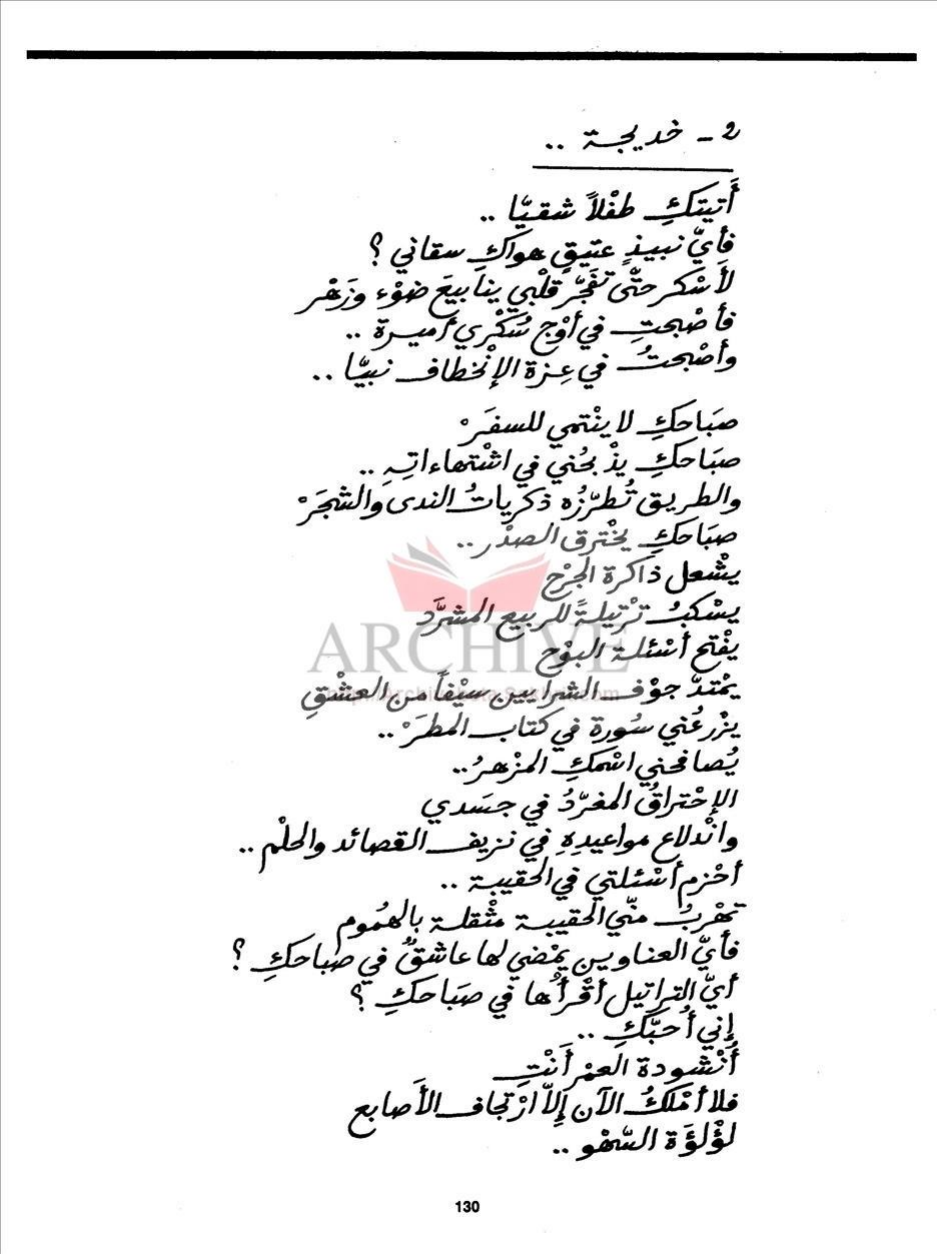 2 - خديجة ..
أَتيتكِ طفْلاً شقيّا ..
فأيّ نبيذٍ عتيقٍ هواكِ سقاني ؟
لأَسْكر حتّى تفَجّر قلْبي ينابيعَ ضوْء وزَهْر
فأصْبحتِ في أوْج سُكْري أميرة ..
وأصْبحتُ في عِزة الإنْخطاف نبيّا ..
صبَاحكِ لا ينْتمي للسفَرْ
صبَاحكِ يذْبحُني في اشْتهاءاتهِ ..
والطريق تُطرّزُه ذكرياتُ الندى والشجَرْ
صبَاحكِ يخْترق الصدْر ..
يشْعل ذاكرة الجرْح
يسْكبُ ترْتيلةً للربيع المشرَّد
يفْتح أسْئلة البوْح
يمْتدّ جوْف الشرايين سيْفاً من العشْقِ
يزْرعُني سُورة في كتاب المطَرْ ..
يُصافحني اسْمكِ المزْهرُ ..
الإحْتراقُ المغرّدُ في جسَدي
وانْدلاع مواعيدِهِ في نزيف القصائد والحلْم ..
أحْزم أسْئلتي في الحقيبة ..
تهْربُ منّي الحقيبة مثْقلة بالهمُوم
فأيّ العناوين يمْضي لها عاشقٌ في صباحكِ ؟
أيّ التراتيل أقْرأُها في صبَاحكِ ؟
إني أُحبّكِ ..
أُنْشودة العمْر أَنْتِ
فلا أمْلكُ الآن إلاّ ارْتجاف الأَصابع
لؤْلؤَة السّهْو ..
ARCHIVE
130